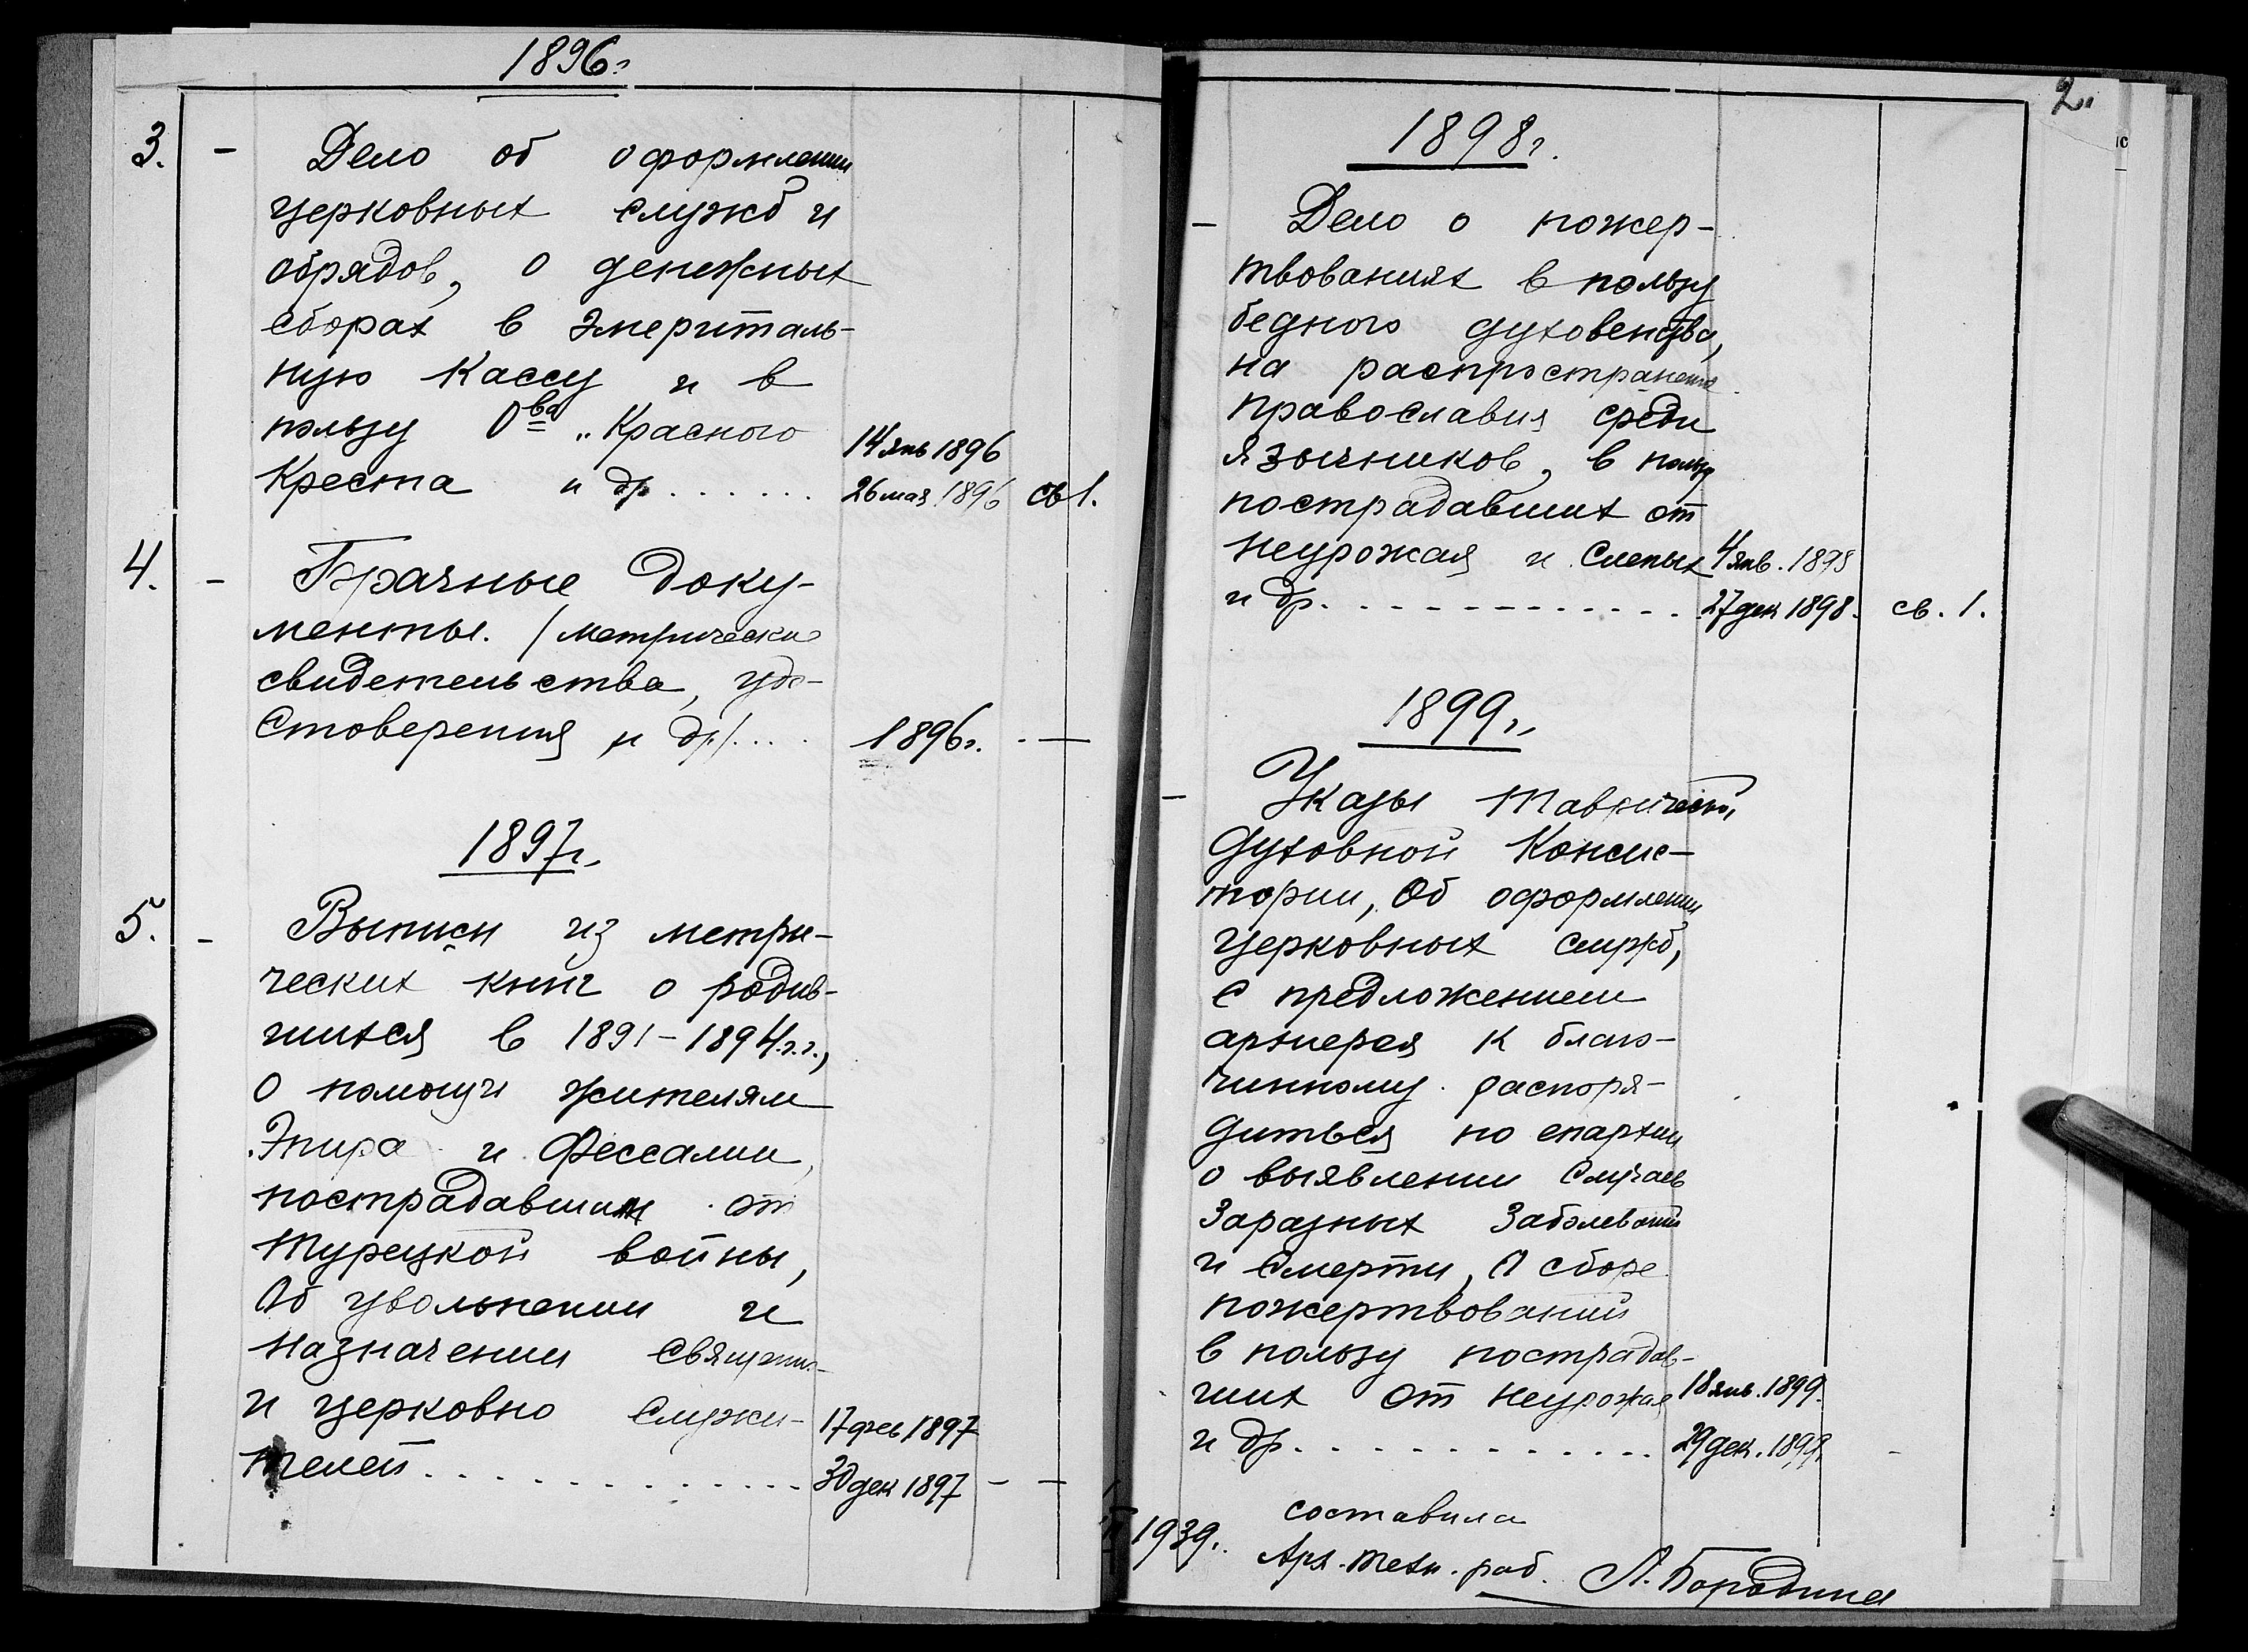 1896г.
3. - Дело об оформлении
церковных служб и
обрядов, о денежных
сборах в эмериталь-
ную кассу и в
пользу О-ва „Красного 14 янв 1896
Креста и др. . . . . . . 26 мая 1896 св 1.
4. - Брачные доку-
менты. /метрические
свидетельства, удо-
стоверения и др/. . . . 1896г. - —
1897г.
5. - Выписи из метри-
ческих книг о родив-
шихся в 1891-1894 г.г.,
о помощи жителям
Эпира и Фессалии,
пострадавшим от
турецкой войны,
Об увольнении и
назначении священно-
и церковно служи- 17 фев 1897
телей. . . . . . . . . . . . . 30 дек 1897 - —
2
1898г.
- Дело о пожер-
твованиях в пользу
бедного духовенства,
на распространение
православия среди
язычников, в пользу
пострадавших от
неурожая и слепых 4 янв. 1898
и др. . . . . . . . . . . . . 27 дек 1898. св. 1.
1899г.
- Указы Таврической
духовной Консис-
тории, Об оформлении
церковных служб,
с предложением
архиерея к благо-
чинному распоря-
диться по епархии
о выявлении случаев
заразных заболеваний
и смерти, О сборе
пожертвований
в пользу пострадав-
ших от неурожая 18 янв. 1899.
и др. . . . . . . . . . . . . 29 дек. 1899. -
1939. составила
Арх. техн. раб. Л. Бородина